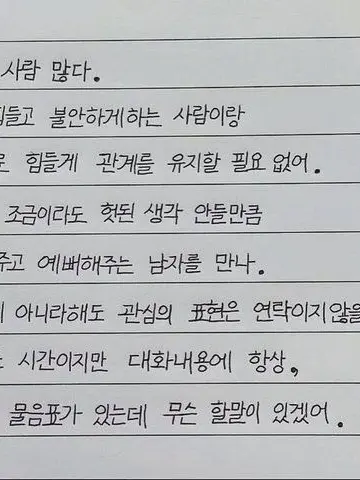 사람 많다.
힘들고 불안하게하는 사람이랑
힘들게 관계를 유지할 필요 없어.
조금이라도 헛된 생각 안들만큼
주고 예뻐해주는 남자를 만나.
아니라해도 관심의 표현은 연락이지않을
시간이지만 대화내용에 항상,
물음표가 있는데 무슨 할말이 있겠어.